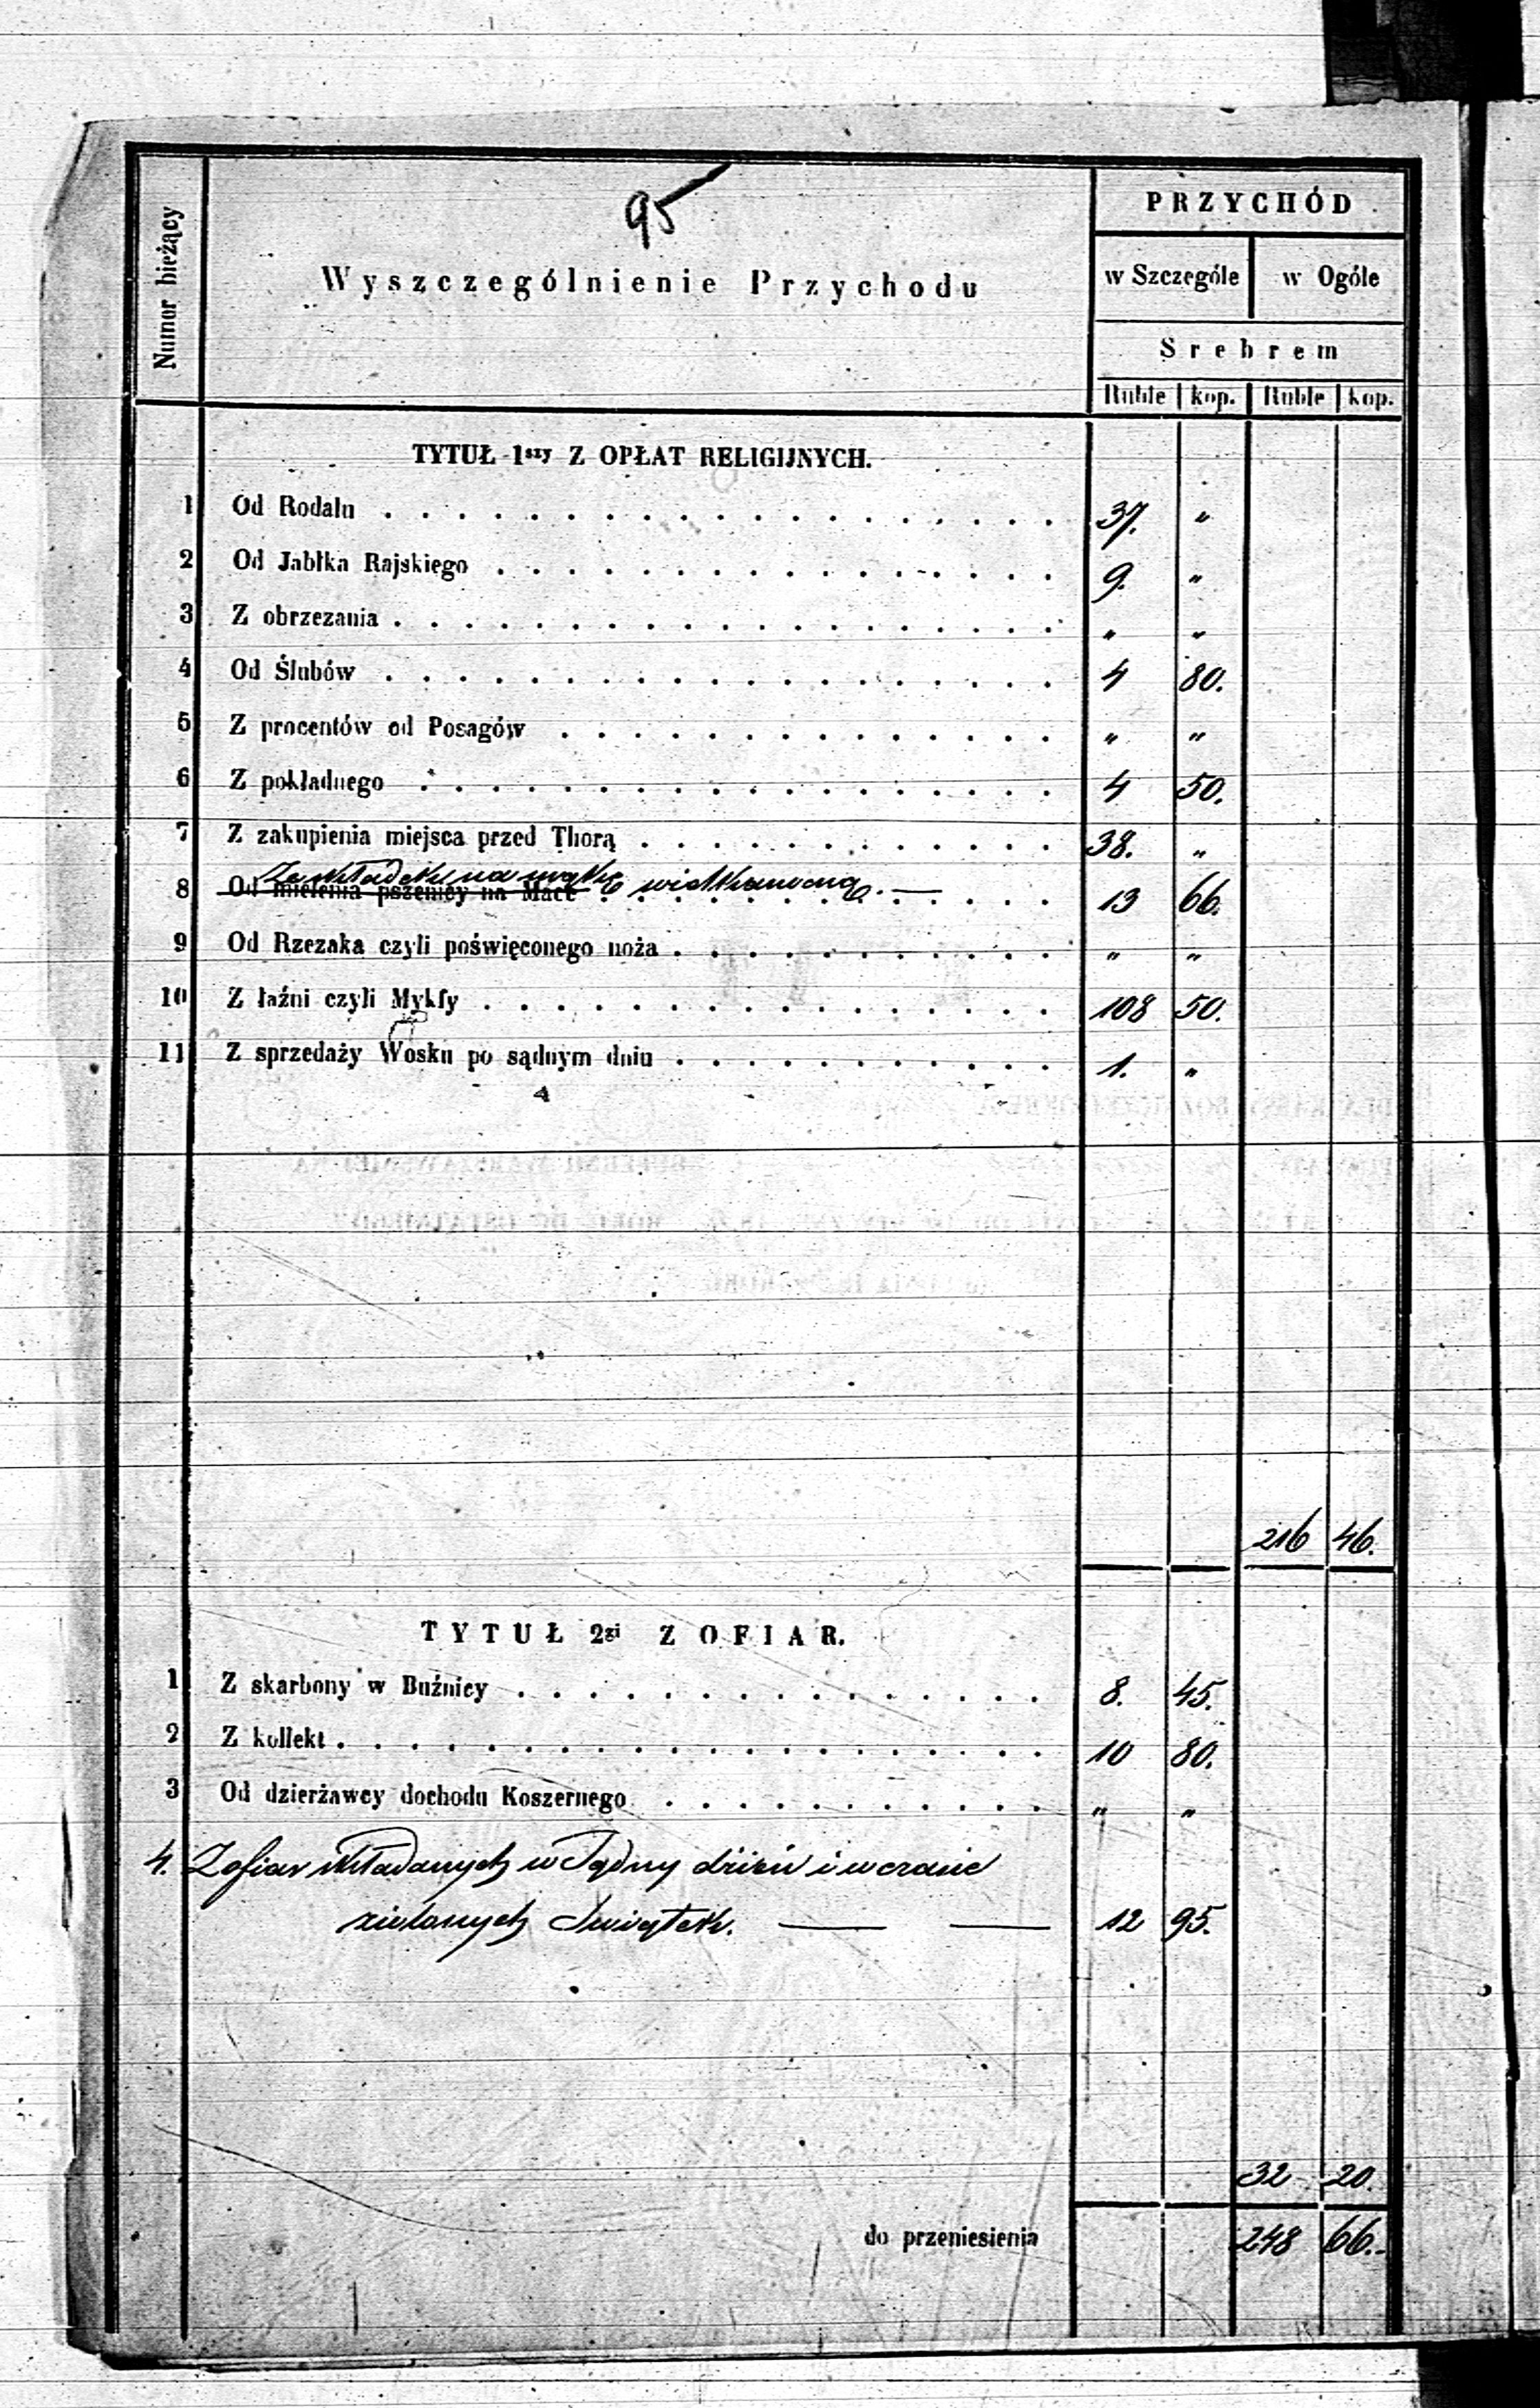 95
Numer bieżący
Wyszczególnienie Przychodu
PRZYCHÓD
w Szczególe w Ogóle
Srebrem
Ruble kop. Ruble kop.
TYTUŁ 1szy Z OPŁAT RELIGIJNYCH.
1 Od Rodału . . . . . 37. "
2 Od Jabłka Rajskiego . . . . . 9. "
3 Z obrzezania . . . . . " "
4 Od Ślubów . . . . . 4 80.
5 Z procentów od Posagów . . . . . " "
6 Z pokładnego . . . . . 4 50.
7 Z zakupienia miejsca przed Thorą . . . . . 38. "
Ze składek na mąkę wielkanocną. —
8 Od mielenia pszenicy na Mace . . . . . 13 66.
9 Od Rzezaka czyli poświęconego noża . . . . . " "
10 Z łaźni czyli Mykfy . . . . . 108 50.
11 Z sprzedaży Wosku po sądnym dniu . . . . . 1. "
216 46.
TYTUŁ 2gi Z OFIAR.
1 Z skarbony w Bużnicy . . . . . 8. 45.
2 Z kollekt . . . . . 10 80.
3 Od dzierżawcy dochodu Koszernego . . . . . " "
4. Z ofiar składanych w Sądny dzień i w czasie
zielonych Swiątek. — — 12 95.
32 20.
do przeniesienia 248 66.